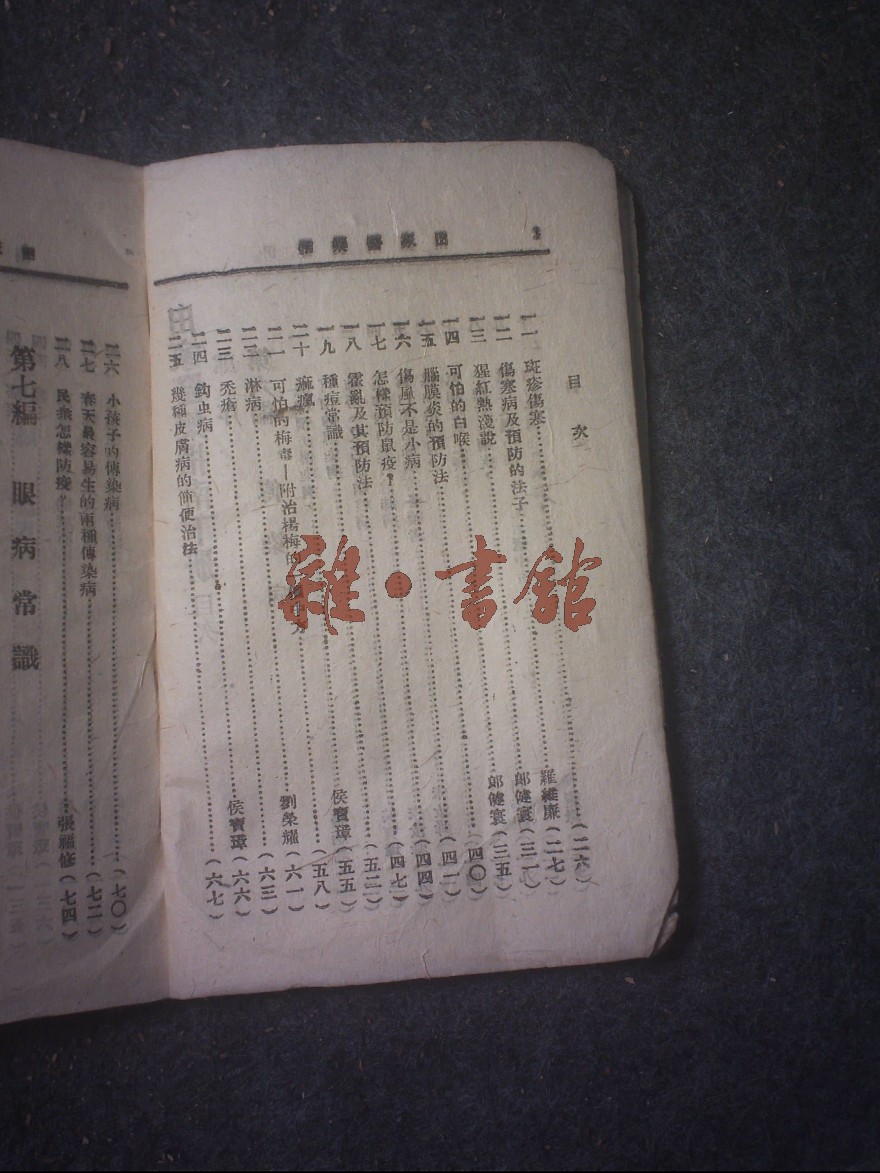 田家醫藥
目次
一一 斑疹傷寒……(二六)
一二 傷寒病及預防的法子……羅維廉(二七)
一三 猩紅熱淺說……郎健寰(三一)
一四 可怕的白喉……郎健寰(三五)
一五 腦膜炎的預防法……(四〇)
一六 傷風不是小病……(四一)
一七 怎樣預防鼠疫?……(四四)
一八 霍亂及其預防法……(四七)
一九 種痘常識……(五二)
二十 痲瘋……侯寶璋(五五)
二一 可怕的梅毒—附治楊梅的……(五八)
二二 淋病……劉榮耀(六一)
二三 禿瘡……(六三)
二四 鈎虫病……侯寶璋(六六)
二五 幾種皮膚病的簡便治法……(六七)
二六 小孩子的傳染病……(七〇)
二七 春天最容易生的兩種傳染病……(七二)
二八 民衆怎樣防疫?……張福修(七四)
第七編 眼病常識
雜·書館